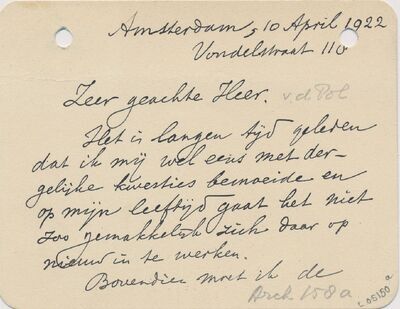 Amsterdam, 10 April 1922
Vondelstraat 110
Zeer geachte Heer. v.d. Pol
Het is langen tijd geleden
dat ik mij wel eens met der-
gelijke kwesties bemoeide en
op mijn leeftijd gaat het niet
zoo gemakkelijk zich daar op
nieuw in te werken.
Bovendien moet ik de
Arch 158a